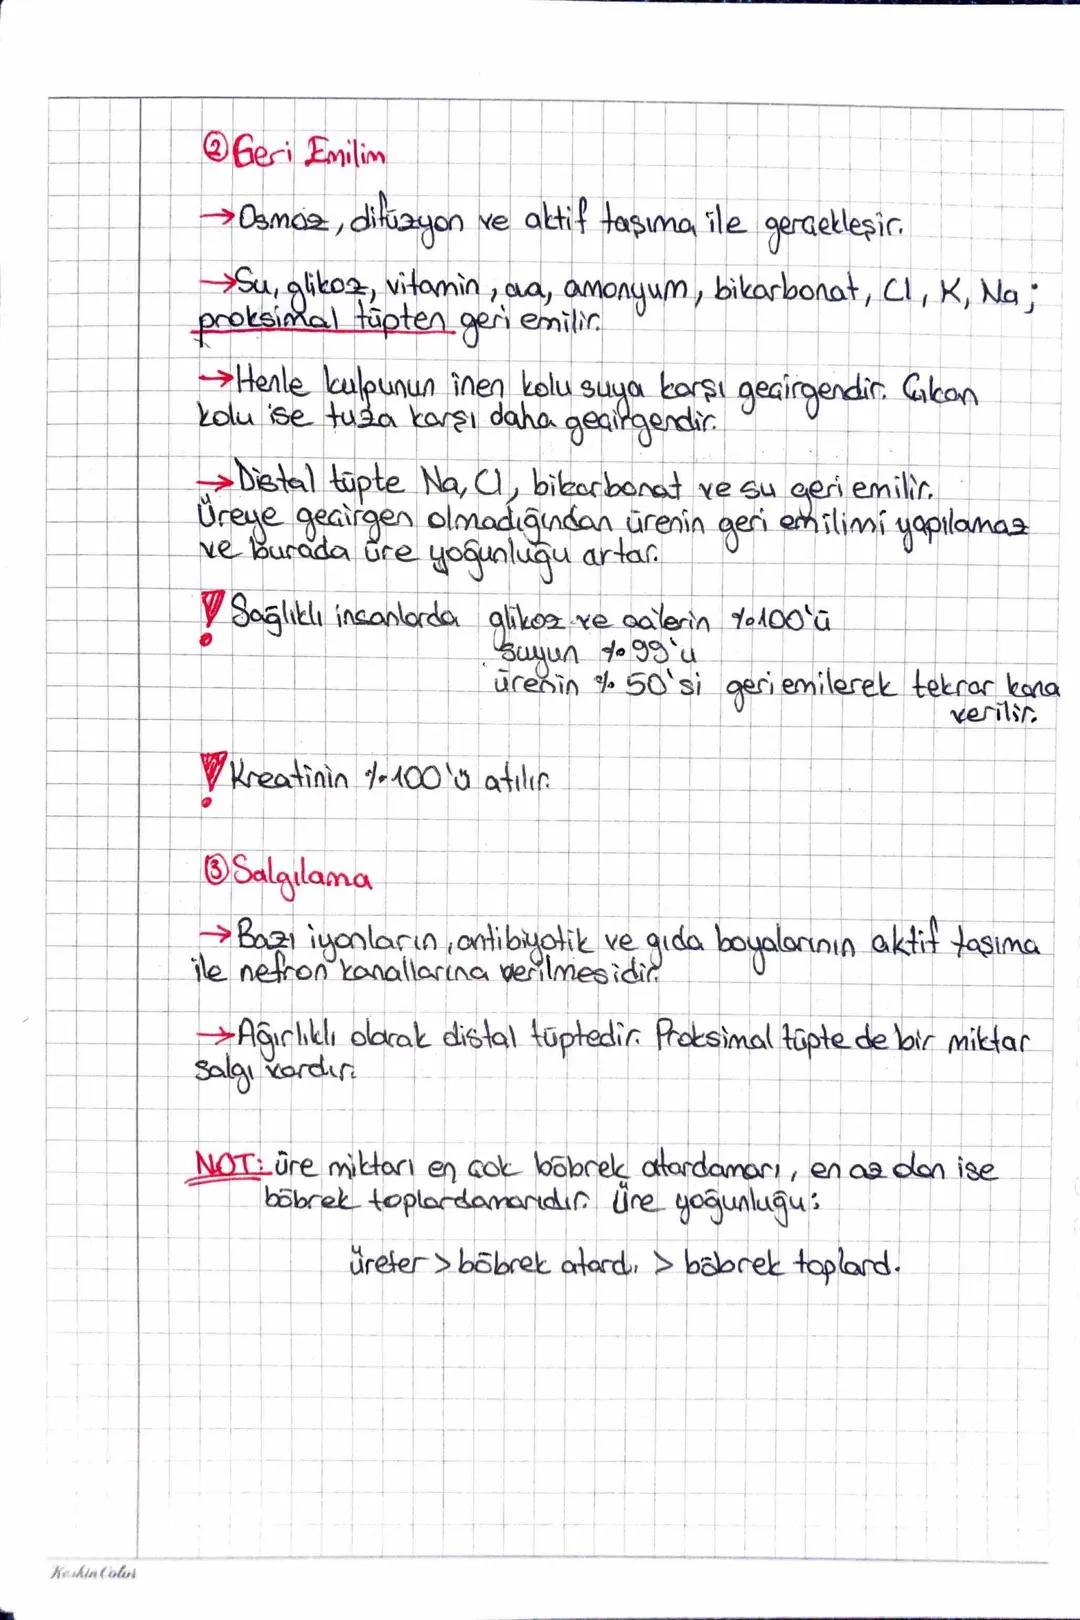 ② Geri Emilim
→Osmoz, difüzyon ve aktif taşıma ile gerçekleşir.
→Su, glikoz, vitamin, aa, amonyum, bikarbonat, Cl, K, Na;
proksimal tüpten geri emilir.
→Henle kulpunun inen kolu suya karşı geçirgendir. Çıkan
kolu ise tuza karşı daha geçirgendir.
→Distal tüpte Na, Cl, bikarbonat ve su geri emilir.
Üreye geçirgen olmadığından ürenin geri emilimi yapılamaz
ve burada üre yoğunluğu artar.
! Sağlıklı insanlarda glikoz ve aa'lerin %100'ü
suyun %99'u
ürenin % 50'si geri emilerek tekrar kana
verilir.
! Kreatinin %100'ü atılır.
③ Salgılama
→Bazı iyonların, antibiyotik ve gıda boyalarının aktif taşıma
ile nefron kanallarına verilmesidir.
→Ağırlıklı olarak distal tüptedir. Proksimal tüpte de bir miktar
salgı vardır.
NOT: üre miktarı en çok böbrek atardamarı, en az olan ise
böbrek toplardamarıdır. Üre yoğunluğu:
üreter > böbrek atard. > böbrek toplard.
Keskin Color